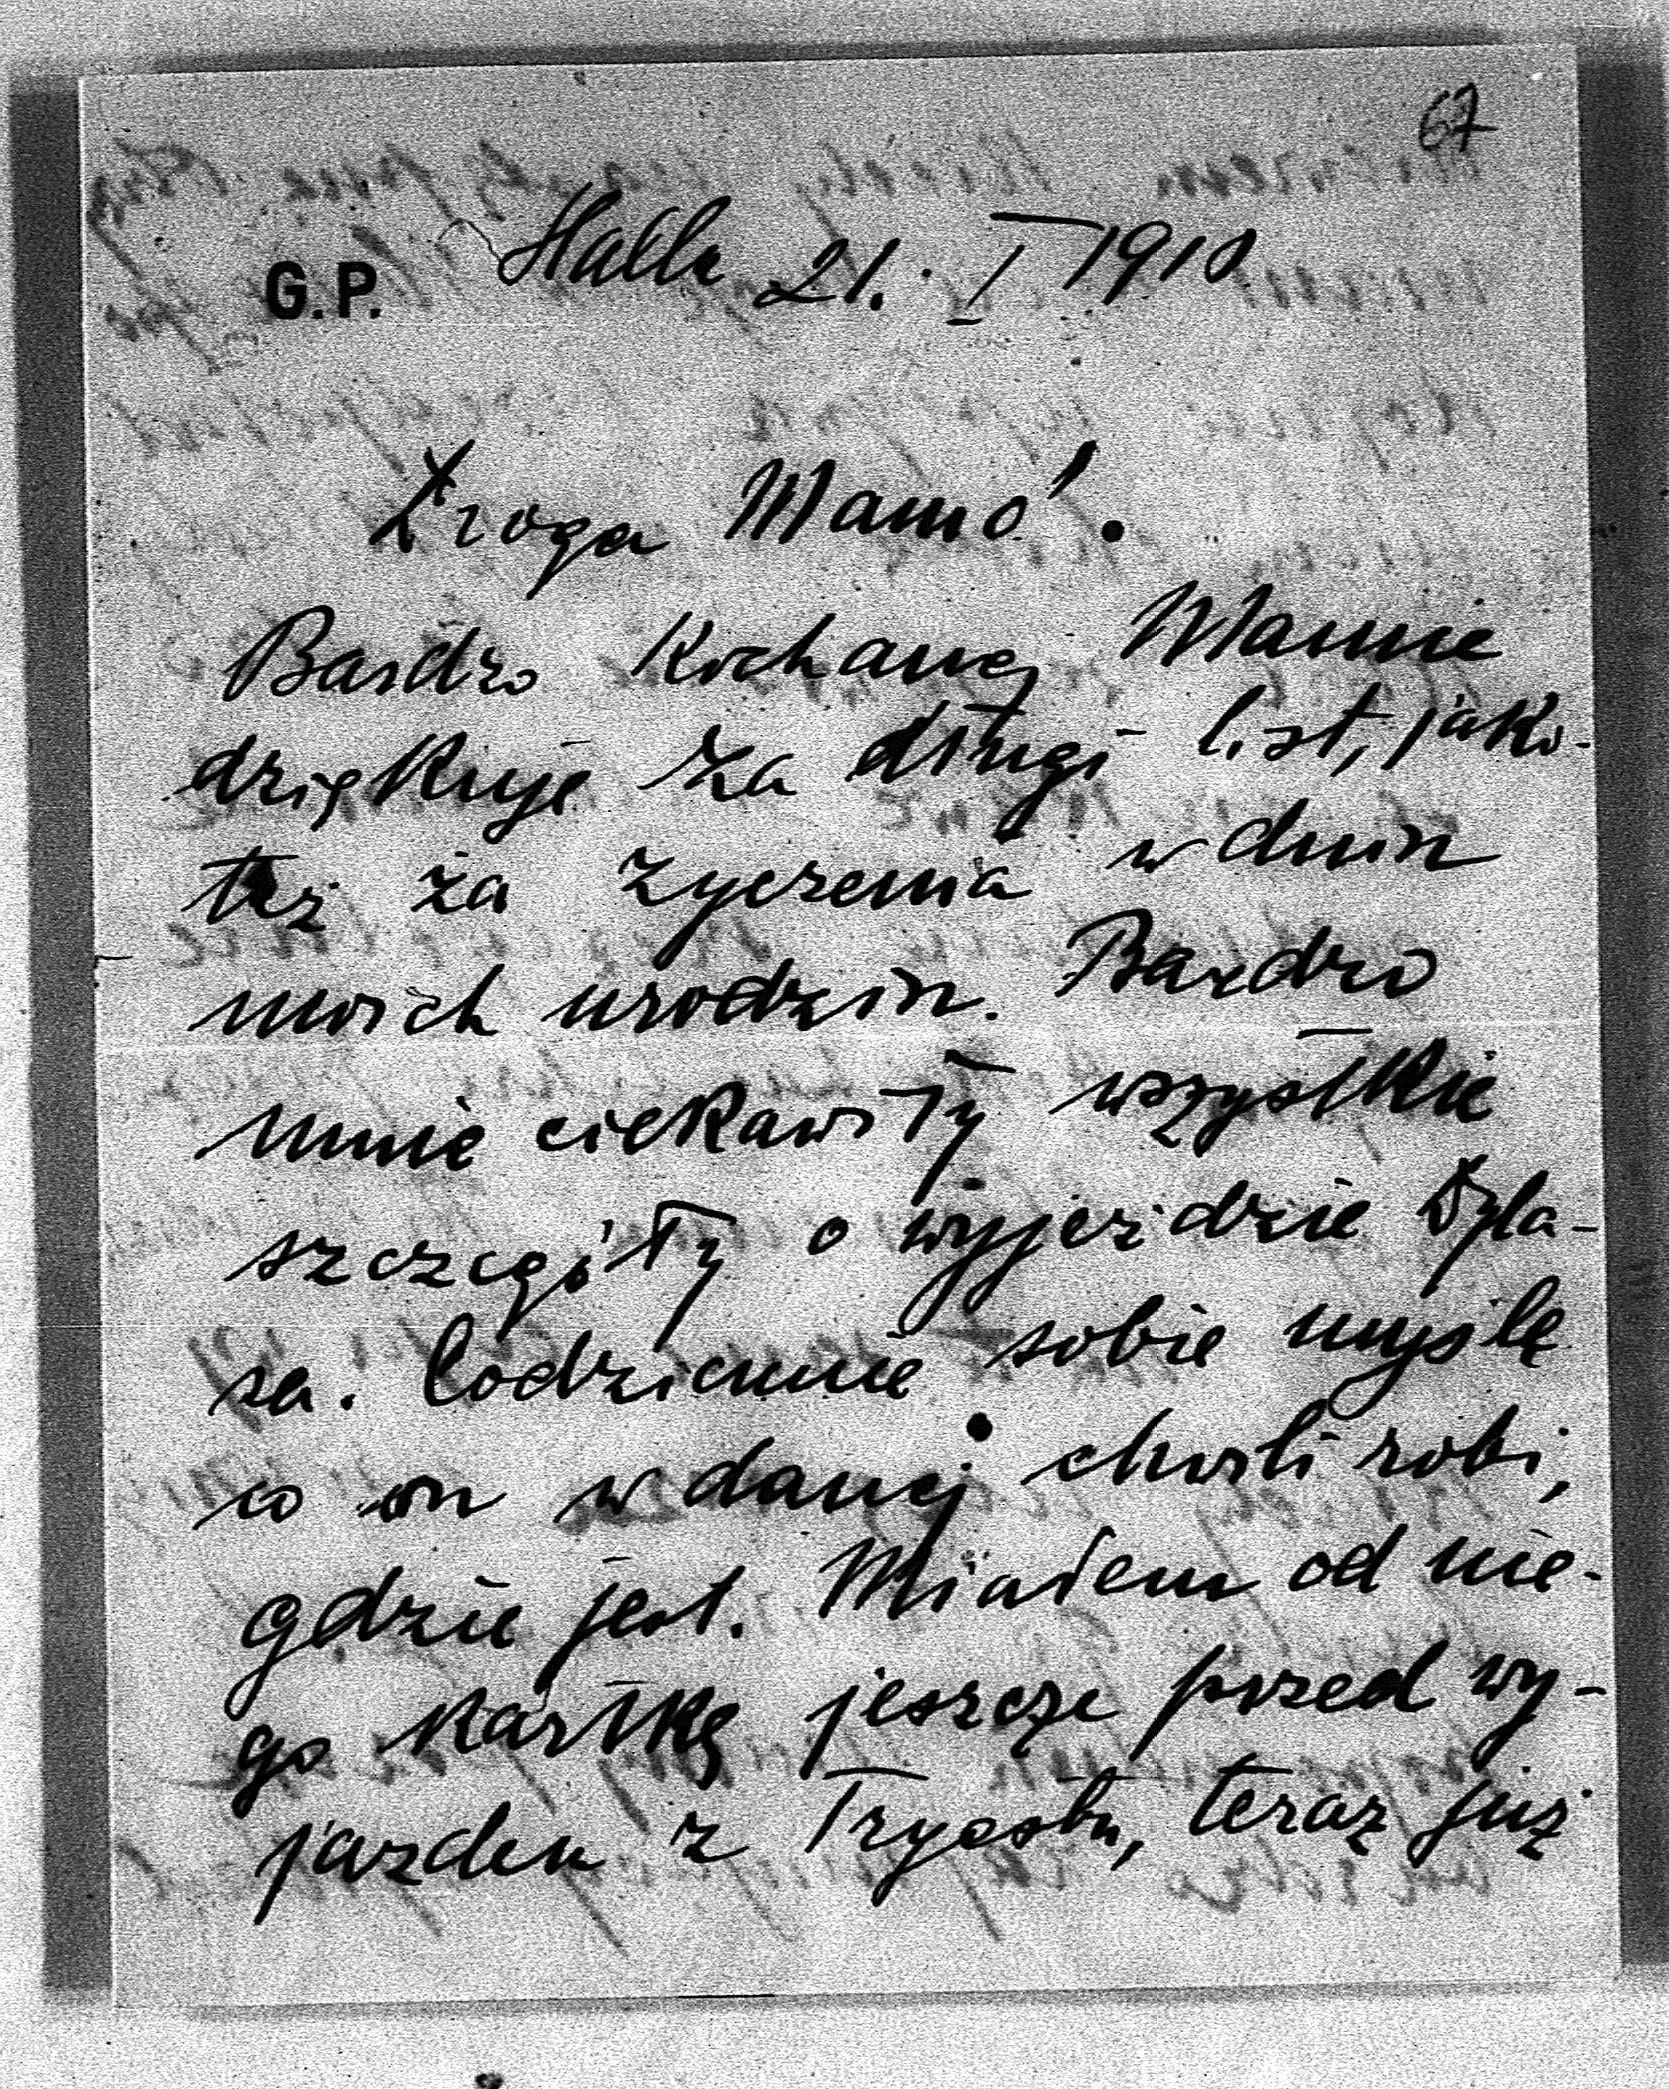 67
G.P. Halle 21. I 1910
Droga Mamo!
Bardzo Kochanej Mamie
dziękuję za długi list, jako-
też za życzenia w dniu
moich urodzin. Bardzo
mnie ciekawiły wszystkie
szczegóły o wyjeździe Dyla-
sa. Codziennie sobie myślę
co on w danej chwili robi,
gdzie jest. Miałem od nie-
go kartkę jeszcze przed wy-
jazdem z Tryestu, teraz już